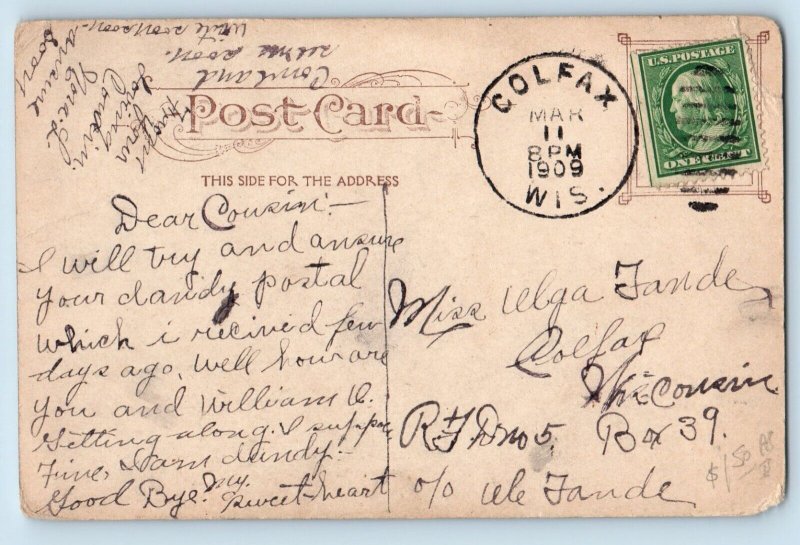 Post Card
THIS SIDE FOR THE ADDRESS
COLFAX
MAR
11
8 PM
1909
WIS.
U.S. POSTAGE
ONE CENT
Dear Cousin:—
I will try and ansure
your dandy postal
which i recived few
days ago. Well how are
you and William O.
getting along. I suppose
Fine, darn dandy.—
Good Bye. my
sweet-heart
Miss Olga Tande
Colfax
Wisconsin
R.F.D no 5. Box 39.
c/o Ole Tande
From
Your
loving
Cousin
Nora L.
answer
soon
Come and
see me soon.
Write soon soon-
$1.50